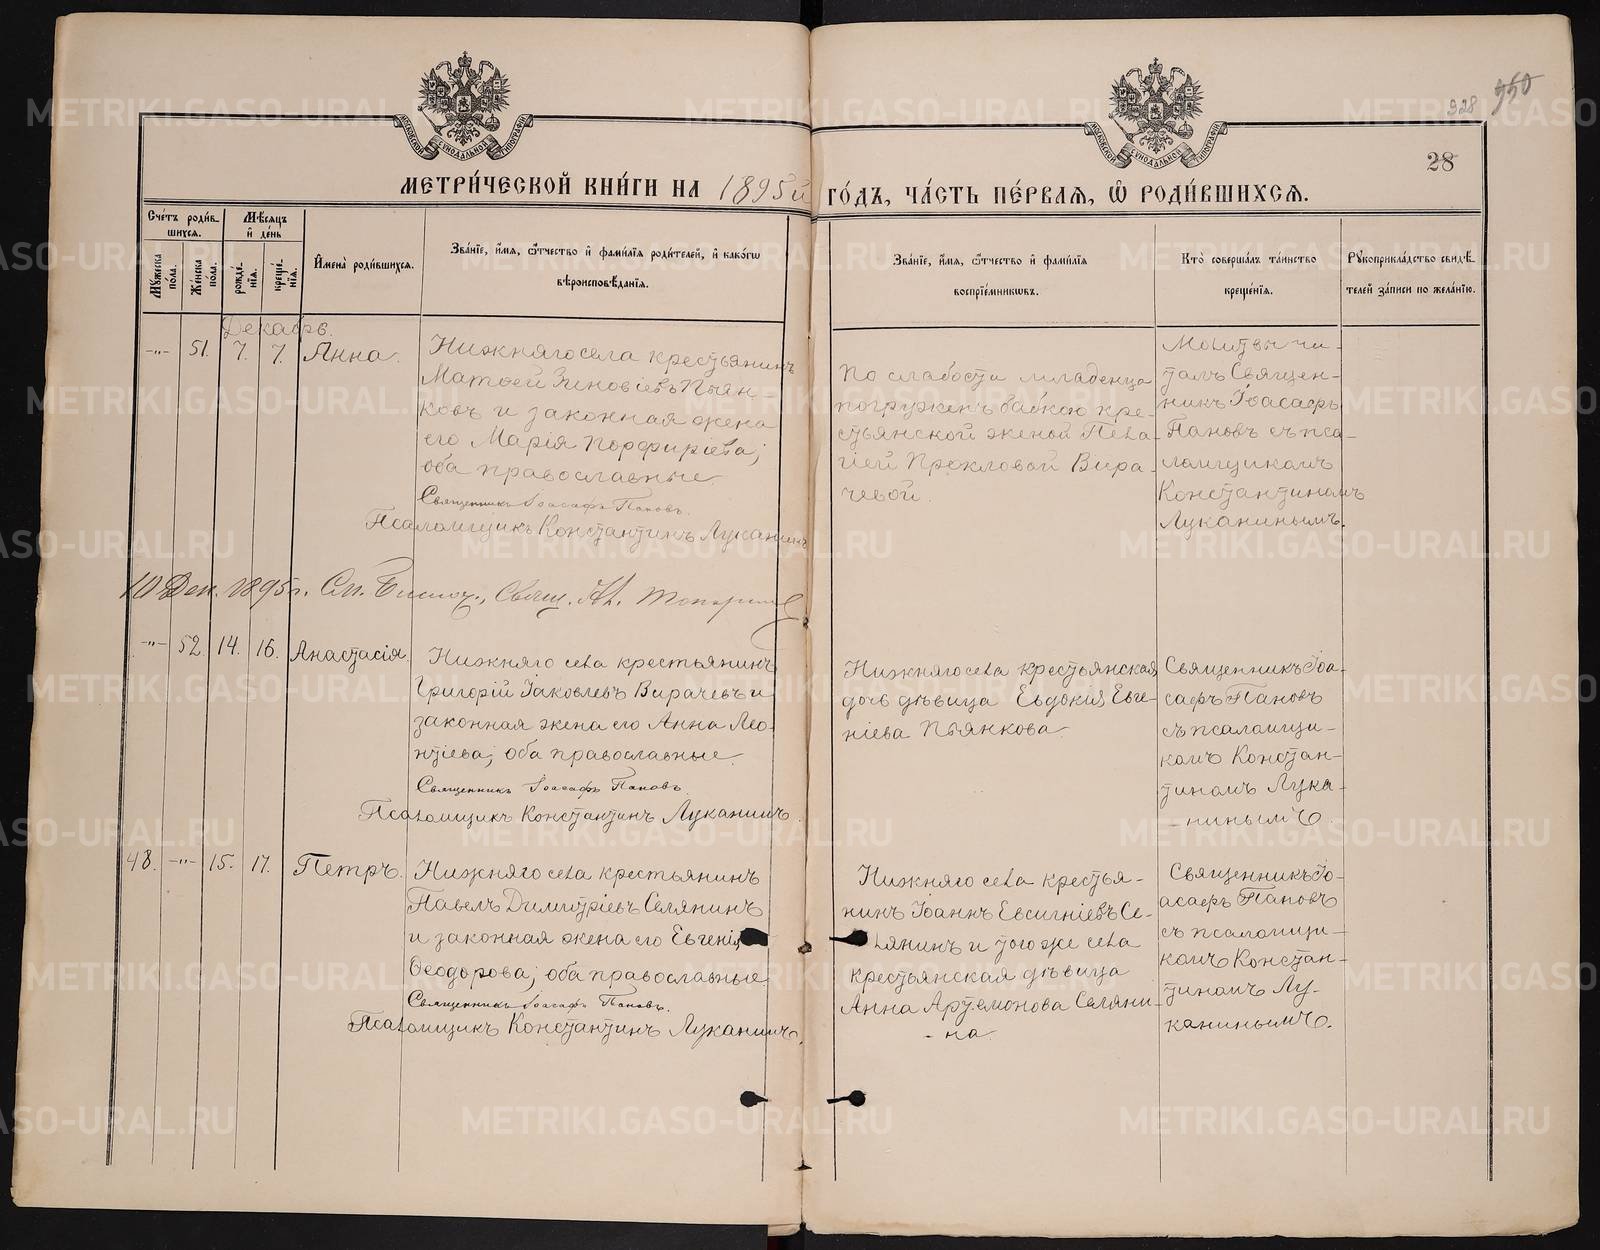 928 950
28
МОСКОВСКОЙ СУНОДАЛЬНОЙ ТИПОГРАФІИ
МОСКОВСКОЙ СУНОДАЛЬНОЙ ТИПОГРАФІИ
МЕТРИ́ЧЕСКОЙ КНИ́ГИ НА 1895й ГО́ДЪ, ЧА́СТЬ ПЕ́РВАЯ, Ѿ РОДИ́ВШИХСЯ.
Сче́тъ роди́в-
шихся.
Мꙋжеска пола.
Же́неска пола.
Мѣ́сяцъ
и҆ де́нь
рожде́-
нїя.
креще́-
нїя.
И҆мена̀ роди́вшихся.
Зва́нїе, и҆́мя, ѻ҆́тчество и҆ фами́лїя роди́телей, и҆ како́гѡ
вѣроисповѣ́данїя.
Зва́нїе, и҆́мя, ѻ҆́тчество и҆ фами́лїя
воспрїе́мникѡвъ.
Кто̀ соверша́лъ та́инство
креще́нїя.
Рꙋкоприкла́дство свидѣ́-
телей за́писи по жела́нїю.
Декабрь.
-"- 51. 7. 7. Анна.
Нижняго села крестьянинъ
Матѳей Зиновіевъ Пьян-
ковъ и законная жена
его Марія Порфиріева;
оба православные
Священникъ Іоасафъ Пановъ.
Псаломщикъ Константинъ Луканинъ
По слабости младенца
погруженъ бабкою кре-
стьянской женой Пела-
гіей Прокловой Вира-
чевой.
Молитвы чи-
талъ Священ-
никъ Іоасафъ
Пановъ съ пса-
ломщикомъ
Константиномъ
Луканинымъ.
10 Дек. 1895 г. Сл. Благоч., Свящ. Ал. Топорковъ
-"- 52. 14. 16. Анастасія.
Нижняго села крестьянинъ
Григорій Іаковлевъ Вирачевъ и
законная жена его Анна Лео-
нтіева; оба православные.
Священникъ Іоасафъ Пановъ.
Псаломщикъ Константинъ Луканинъ.
Нижняго села крестьянская
дочь дѣвица Евдокія Евге-
ніева Пьянкова
Священникъ Іоа-
сафъ Пановъ
съ псаломщи-
комъ Констан-
тиномъ Лука-
-нинымъ.
48. -"- 15. 17. Петръ.
Нижняго села крестьянинъ
Павелъ Димитріевъ Селянинъ
и законная жена его Евгенія
Ѳеодорова; оба православные
Священникъ Іоасафъ Пановъ.
Псаломщикъ Константинъ Луканинъ.
Нижняго села крестья-
нинъ Іоаннъ Евсигніевъ Се-
лянинъ и того же села
крестьянская дѣвица
Анна Артемонова Селяни-
-на.
Священникъ Іо-
асафъ Пановъ
съ псаломщи-
комъ Констан-
тиномъ Лу-
канинымъ.